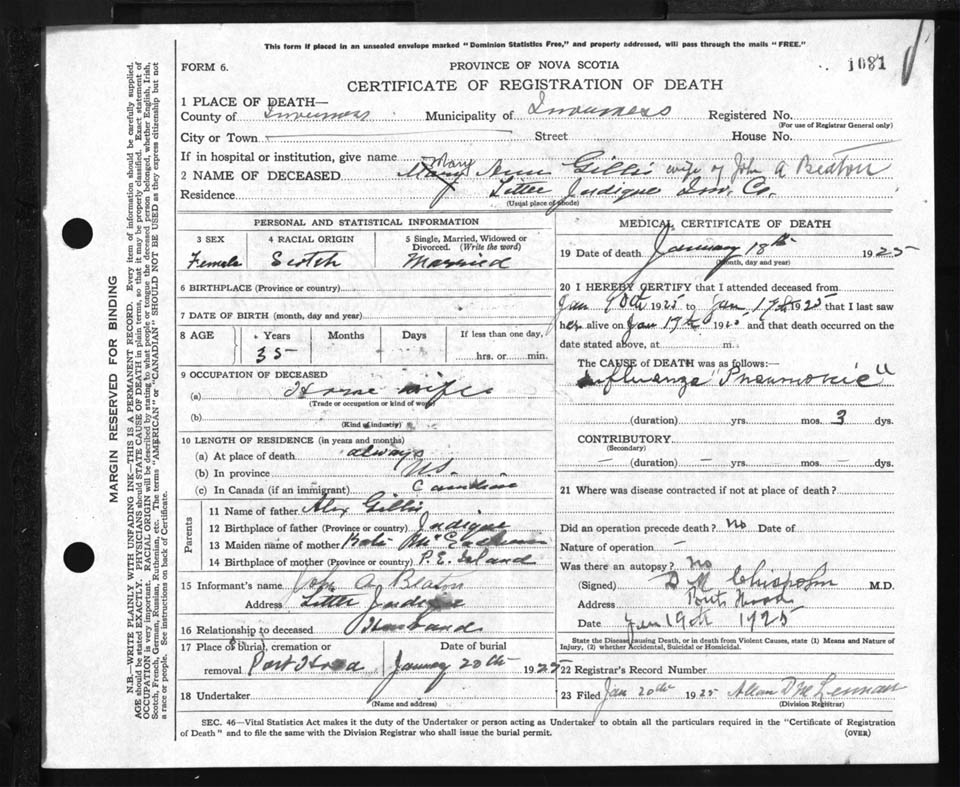 This form if placed in an unsealed envelope marked "Dominion Statistics Free," and properly addressed, will pass through the mails "FREE."
FORM 6.
PROVINCE OF NOVA SCOTIA
1081
CERTIFICATE OF REGISTRATION OF DEATH
1 PLACE OF DEATH—
County of Inverness Municipality of Inverness Registered No.
(For use of Registrar General only)
City or Town Street House No.
If in hospital or institution, give name
2 NAME OF DECEASED Mary Ann Gillis wife of John A Beaton
Residence Little Judique Inv. Co.
(Usual place of abode)
PERSONAL AND STATISTICAL INFORMATION
3 SEX 4 RACIAL ORIGIN 5 Single, Married, Widowed or Divorced. (Write the word)
Female Scotch Married
6 BIRTHPLACE (Province or country)
7 DATE OF BIRTH (month, day and year)
8 AGE Years Months Days If less than one day,
35
hrs. or min.
9 OCCUPATION OF DECEASED
(a) House wife
(Trade or occupation or kind of work)
(b)
(Kind of industry)
10 LENGTH OF RESIDENCE (in years and months)
(a) At place of death always
(b) In province N.S.
(c) In Canada (if an immigrant)
Parents
11 Name of father Alex Gillis
12 Birthplace of father (Province or country) Judique
13 Maiden name of mother Kate
14 Birthplace of mother (Province or country) P.E. Island
15 Informant's name John A Beaton
Address Little Judique
16 Relationship to deceased Husband
17 Place of burial, cremation or Date of burial
removal Port Hood January 20th 1925
18 Undertaker
(Name and address)
MEDICAL CERTIFICATE OF DEATH
19 Date of death January 18th 1925
(Month, day and year)
20 I HEREBY CERTIFY that I attended deceased from
Jan 1925 to Jan 17th 1925 that I last saw
her alive on Jan 17th 192 and that death occurred on the
date stated above, at m.
The CAUSE of DEATH was as follows:
Influenza "Pneumonic"
(duration) yrs. mos. 3 dys.
CONTRIBUTORY
(Secondary)
— (duration) — yrs. — mos. — dys.
21 Where was disease contracted if not at place of death?
Did an operation precede death? No Date of
Nature of operation —
Was there an autopsy? No
(Signed) Chisholm M.D.
Address Port Hood
Date Jan 19th 1925
State the Disease causing Death, or in death from Violent Causes, state (1) Means and Nature of
Injury, (2) whether Accidental, Suicidal or Homicidal.
22 Registrar's Record Number
23 Filed Jan 20th 1925 Allan D McLennan
(Division Registrar)
SEC. 46—Vital Statistics Act makes it the duty of the Undertaker or person acting as Undertaker to obtain all the particulars required in the "Certificate of Registration
of Death" and to file the same with the Division Registrar who shall issue the burial permit. (OVER)
MARGIN RESERVED FOR BINDING
N.B.—WRITE PLAINLY WITH UNFADING INK—THIS IS A PERMANENT RECORD. Every item of information should be carefully supplied.
AGE should be stated EXACTLY. PHYSICIANS should STATE CAUSE OF DEATH in plain terms, so that it may be properly classified. Exact statement of
OCCUPATION is very important. RACIAL ORIGIN will be described by stating to what people or tongue the deceased person belonged, whether English, Irish,
Scotch, French, German, Russian, Ruthenian, etc. The terms "AMERICAN" or "CANADIAN" SHOULD NOT BE USED as they express citizenship but not
a race or people. See instructions on back of Certificate.